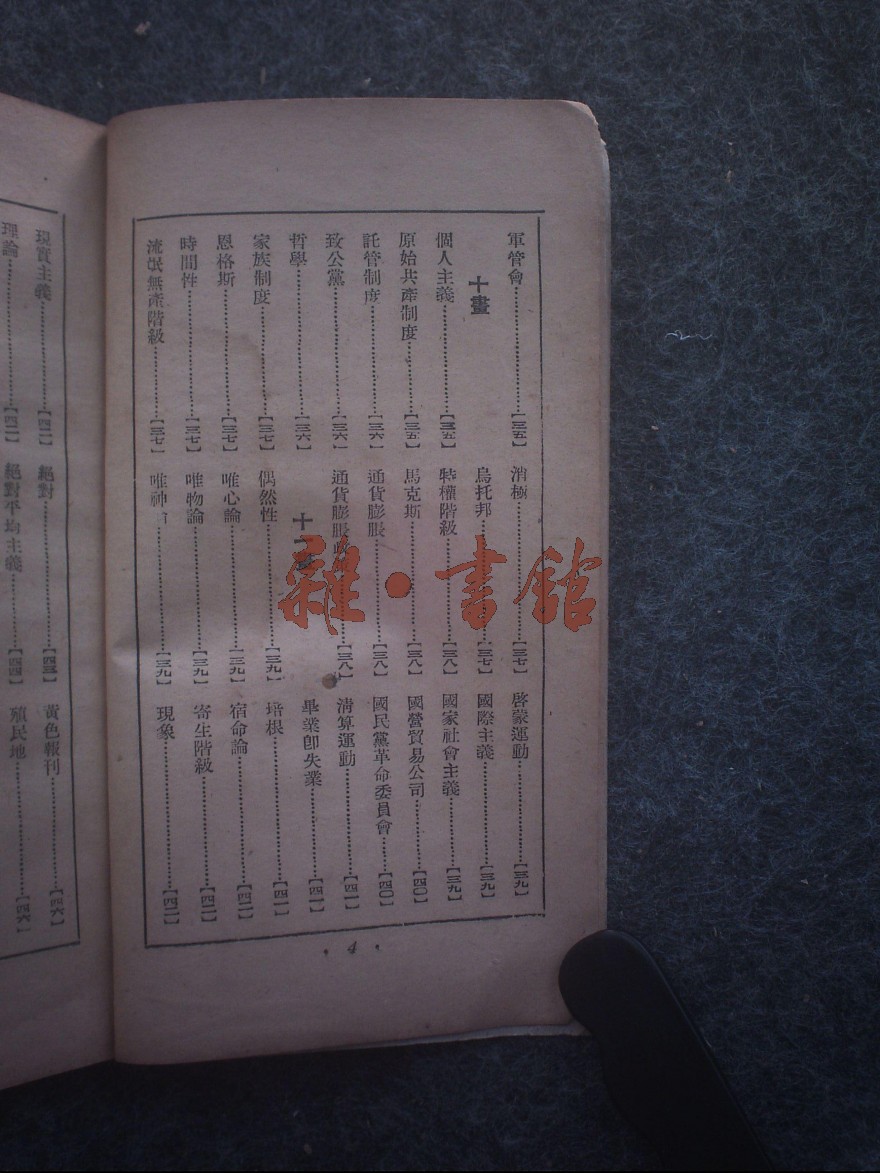 軍管會【三五】
十畫
個人主義【三五】
原始共產制度【三五】
託管制度【三六】
致公黨【三六】
哲學【三六】
家族制度【三七】
恩格斯【三七】
時間性【三七】
流氓無產階級【三七】
消極【三七】
烏托邦【三七】
特權階級【三八】
馬克斯【三八】
通貨膨脹【三八】
通貨膨脹【三八】
十一畫
偶然性【三九】
唯心論【三九】
唯物論【三九】
唯神【三九】
啓蒙運動【三九】
國際主義【三九】
國家社會主義【三九】
國營貿易公司【四〇】
國民黨革命委員會【四〇】
清算運動【四一】
畢業卽失業【四一】
培根【四一】
宿命論【四二】
寄生階級【四二】
現象【四二】
4
現實主義【四二】
理論【四二】
絕對【四三】
絕對平均主義【四四】
黃色報刊【四六】
殖民地【四六】
雜·書館